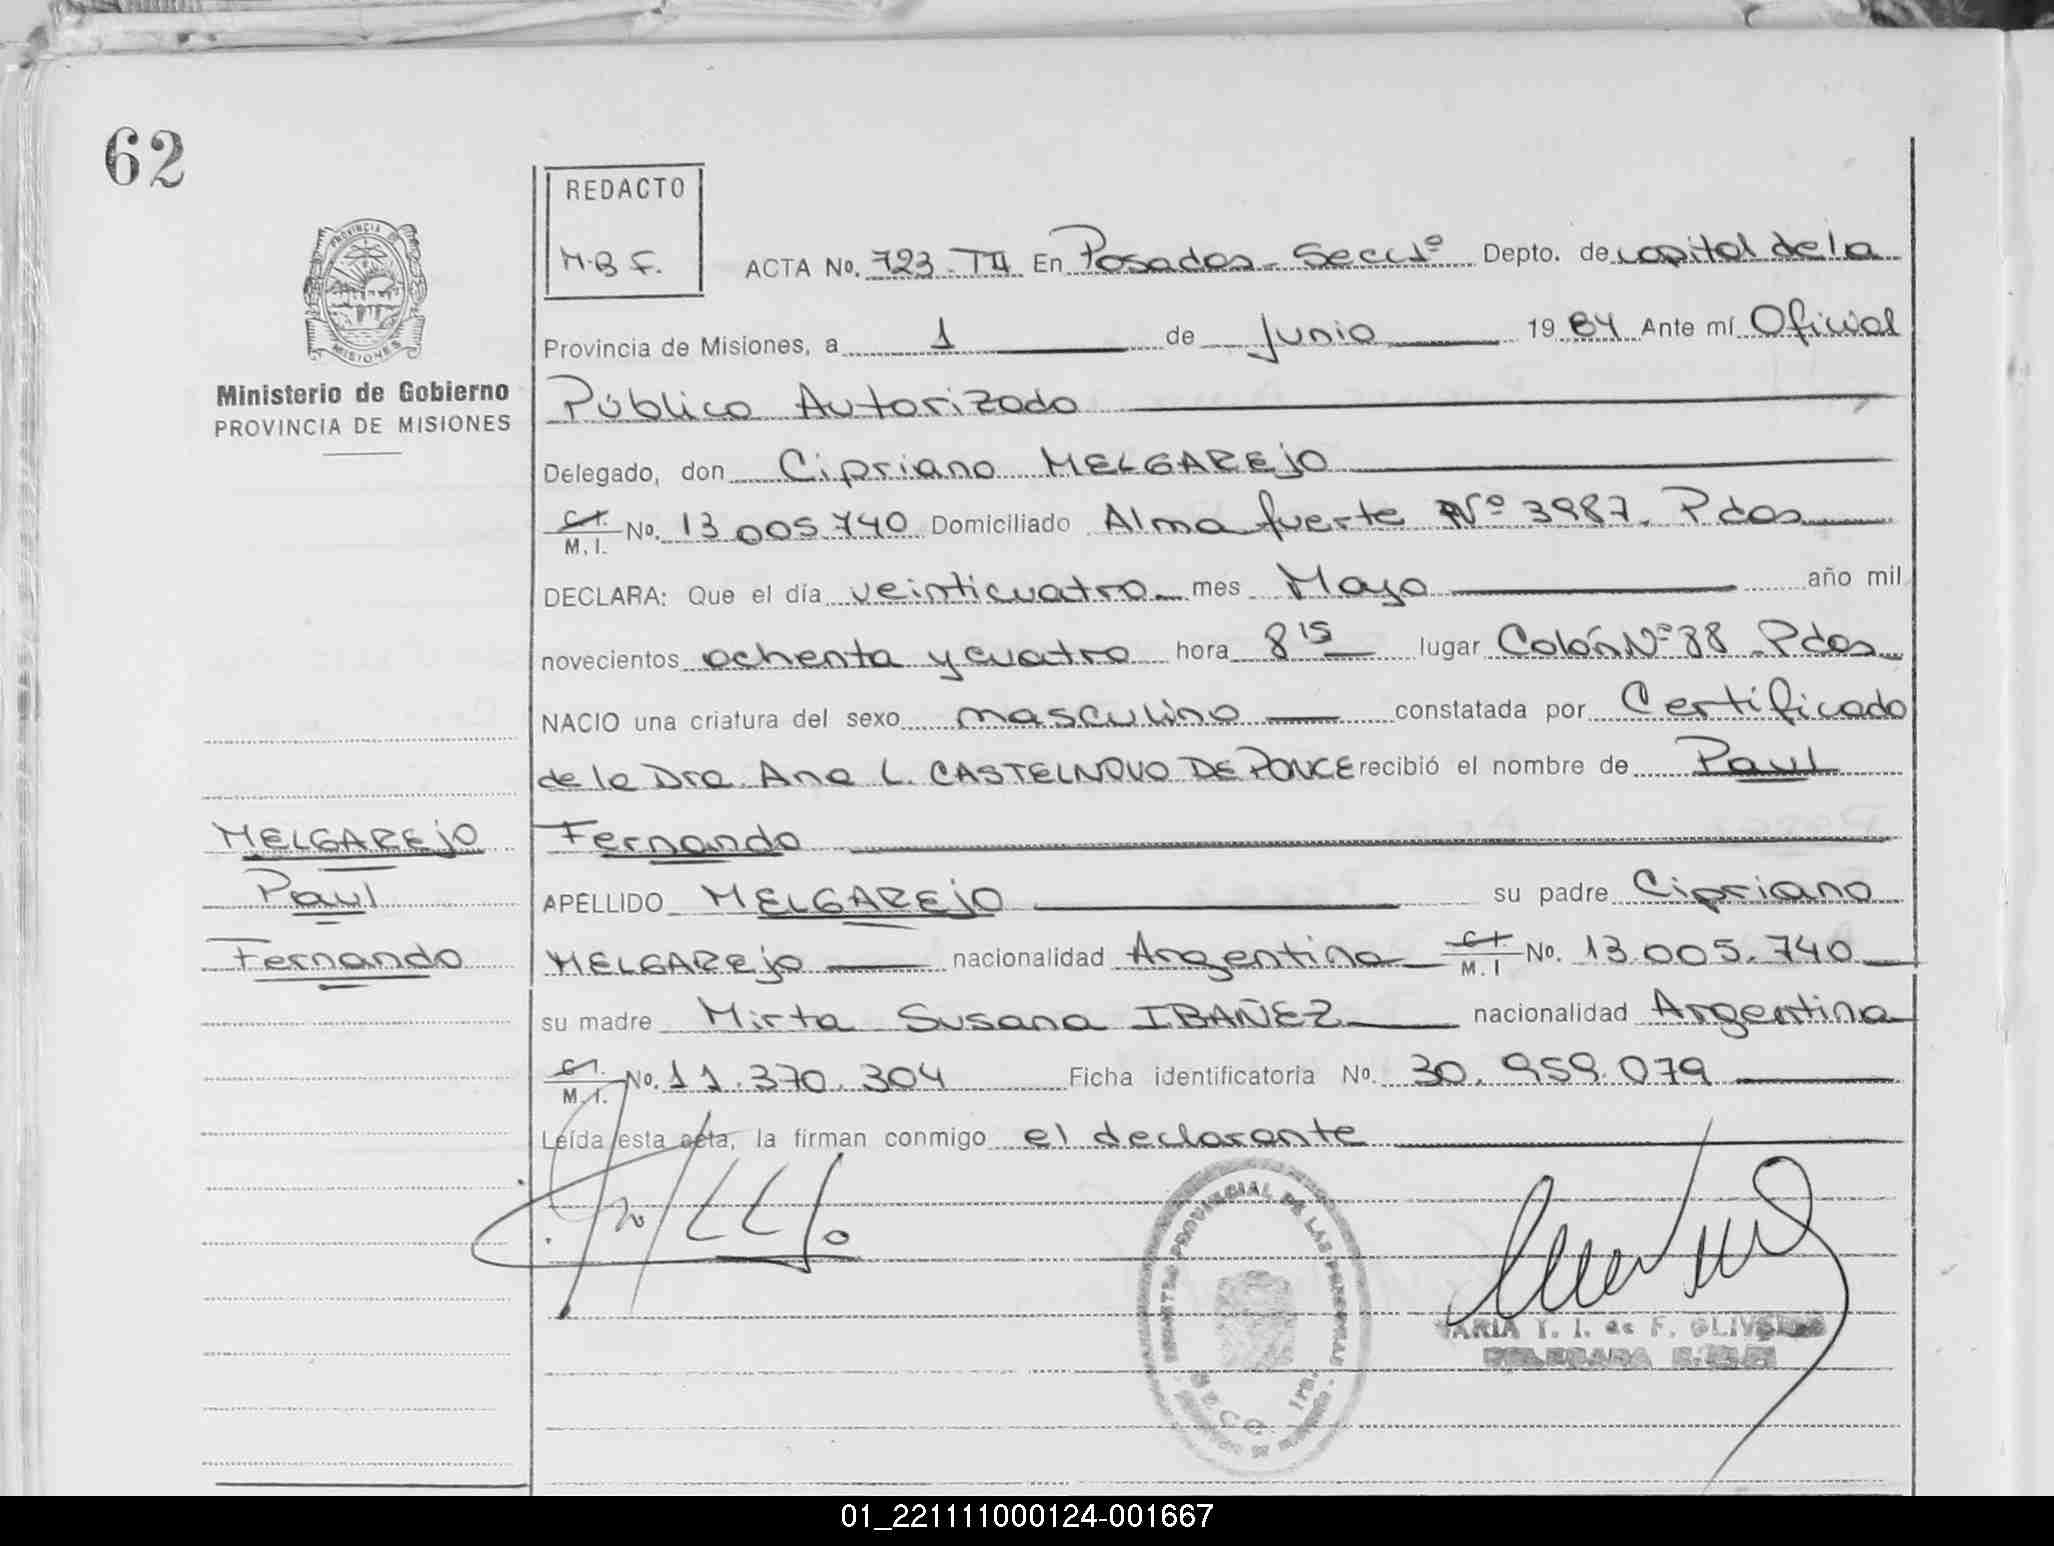 62
REDACTO
M.B F.
PROVINCIA DE
MISIONES
Ministerio de Gobierno
PROVINCIA DE MISIONES
ACTA No. 723-TII En Posadas - Secc 1º Depto. de capital de la
Provincia de Misiones, a 1 de junio 1984 Ante mí Oficial
Público Autorizado
Delegado, don Cipriano MELGAREJO
C.I. M.I. No. 13.005.740 Domiciliado Almafuerte Nº 3987. Pdas
DECLARA: Que el día veinticuatro mes Mayo año mil
novecientos ochenta y cuatro hora 8 15 lugar Colón Nº 88 - Pdas
NACIO una criatura del sexo masculino constatada por Certificado
de la Dra. Ana L. CASTELNOVO DE PONCE recibió el nombre de Paul
Fernando
APELLIDO MELGAREJO su padre Cipriano
MELGAREJO nacionalidad Argentina C.I. M.I No. 13.005.740
su madre Mirta Susana IBAÑEZ nacionalidad Argentina
C.I. M.I. No. 11.370.304 Ficha identificatoria No. 30.959.079
Leída esta acta, la firman conmigo el declarante
MELGAREJO
Paul
Fernando
PROVINCIAL DE LAS PERSONAS
ARIA Y. I. de F. OLIVEIRA
DELEGADA
01_221111000124-001667